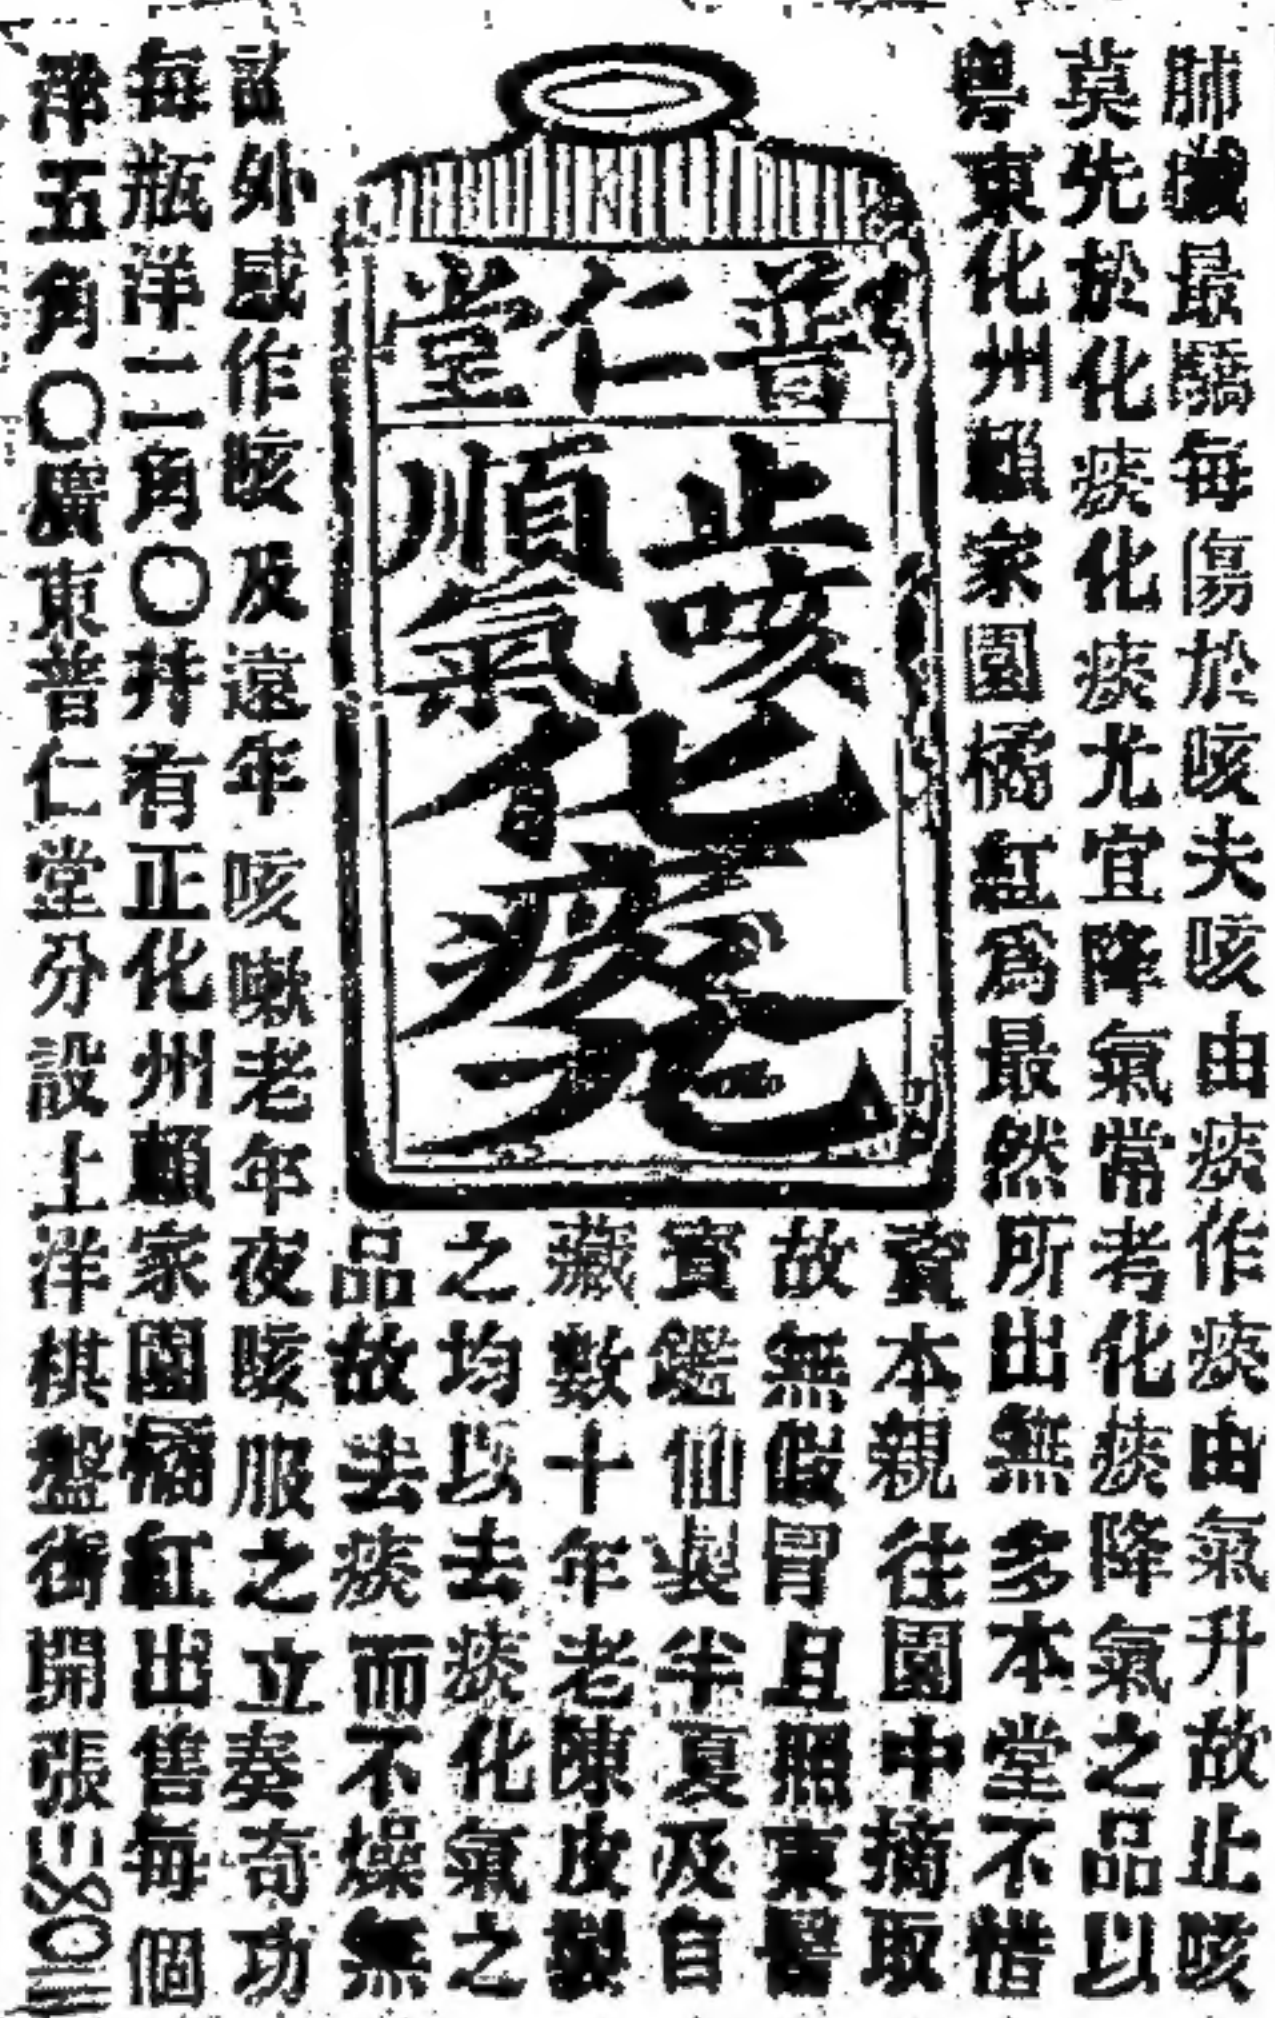 肺臟最驕每傷於咳夫咳由痰作痰由氣升故止咳
莫先於化痰化痰尤宜降氣常考化痰降氣之品以
粵東化州賴家園橘紅爲最然所出無多本堂不惜
資本親往園中摘取
故無假冒且照東醫
寶鑑仙製半夏及自
藏數十年老陳皮製
之均以去痰化氣之
品故去痰而不燥無
論外感作咳及遠年咳嗽老年夜咳服之立奏奇功
每瓶洋二角〇幷有正化州賴家園橘紅出售每個
洋五角〇廣東普仁堂分設上洋棋盤街開張
普仁堂
止咳
順氣
化痰